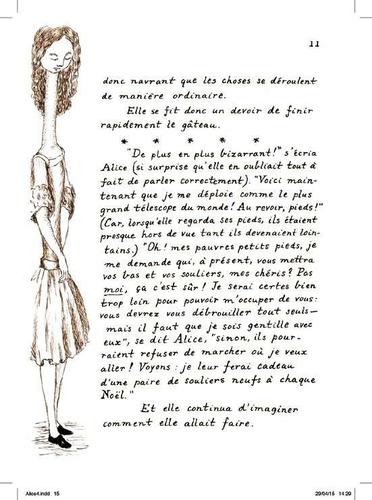 11
donc navrant que les choses se déroulent
de manière ordinaire.
Elle se fit donc un devoir de finir
rapidement le gâteau.
* * * * *
"De plus en plus bizarrant!" s'écria
Alice (si surprise qu'elle en oubliait tout à
fait de parler correctement). "Voici main-
tenant que je me déploie comme le plus
grand télescope du monde! Au revoir, pieds!"
(Car, lorsqu'elle regarda ses pieds, ils étaient
presque hors de vue tant ils devenaient loin-
tains.) "Oh! mes pauvres petits pieds, je
me demande qui, à présent, vous mettra
vos bas et vos souliers, mes chéris? Pas
moi, ça c'est sûr! Je serai certes bien
trop loin pour pouvoir m'occuper de vous:
vous devrez vous débrouiller tout seuls—
mais il faut que je sois gentille avec
eux", se dit Alice, "sinon, ils pour-
raient refuser de marcher où je veux
aller! Voyons: je leur ferai cadeau
d'une paire de souliers neufs à chaque
Noël."
Et elle continua d'imaginer
comment elle allait faire.
Alice4.indd 15
29/04/15 14:29